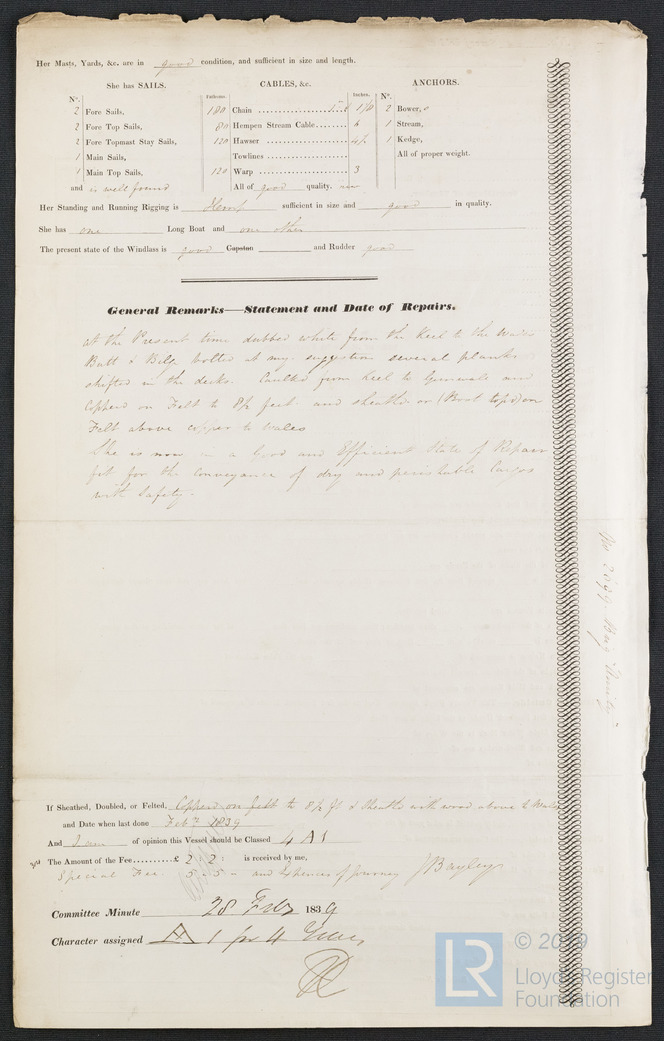 Her Masts, Yards, &c. are in good condition, and sufficient in size and length.
She has SAILS.
CABLES, &c.
ANCHORS.
Nº.
Fathoms
Inches.
Nº.
2 Fore Sails,
2 Fore Top Sails,
2 Fore Topmast Stay Sails,
1 Main Sails,
1 Main Top Sails,
and is well found
180 Chain
80 Hempen Stream Cable
120 Hawser
Towlines
120 Warp 3
All of good quality,
2 Bower,
1 Stream,
1 Kedge,
All of proper weight.
Her Standing and Running Rigging is Hemp sufficient in size and good in quality.
She has one Long Boat and one other
The present state of the Windlass is good Capstan and Rudder good
General Remarks—Statement and Date of Repairs.
at the Present time dubbed white from the Keel to the Wales
Butt & Bilge bolted at my suggestion several planks
shifted in the decks. Caulked from Keel to Gunwale and
Copperd on Felt to 8½ feet and sheathd or (Boat topd) on
Felt above copper to Wales
She is now in a Good and Efficient State of Repair
fit for the conveyance of dry and perishable Cargos
with Safety.
If Sheathed, Doubled, or Felted, Copperd on felt to 8½ ft & Sheathd with wood above to Wales
and Date when last done Feby 1839
And I am of opinion this Vessel should be Classed 4 A 1
The Amount of the Fee £ 2 : 2 : is received by me,
Special Fee 5 : 5 : – and Expences of journey J Bayley
Committee Minute 28 Feby 1839
Character assigned A 1 for 4 Years
No 2099 Brig "Amity"
© 2019
Lloyd's Register
Foundation
LR